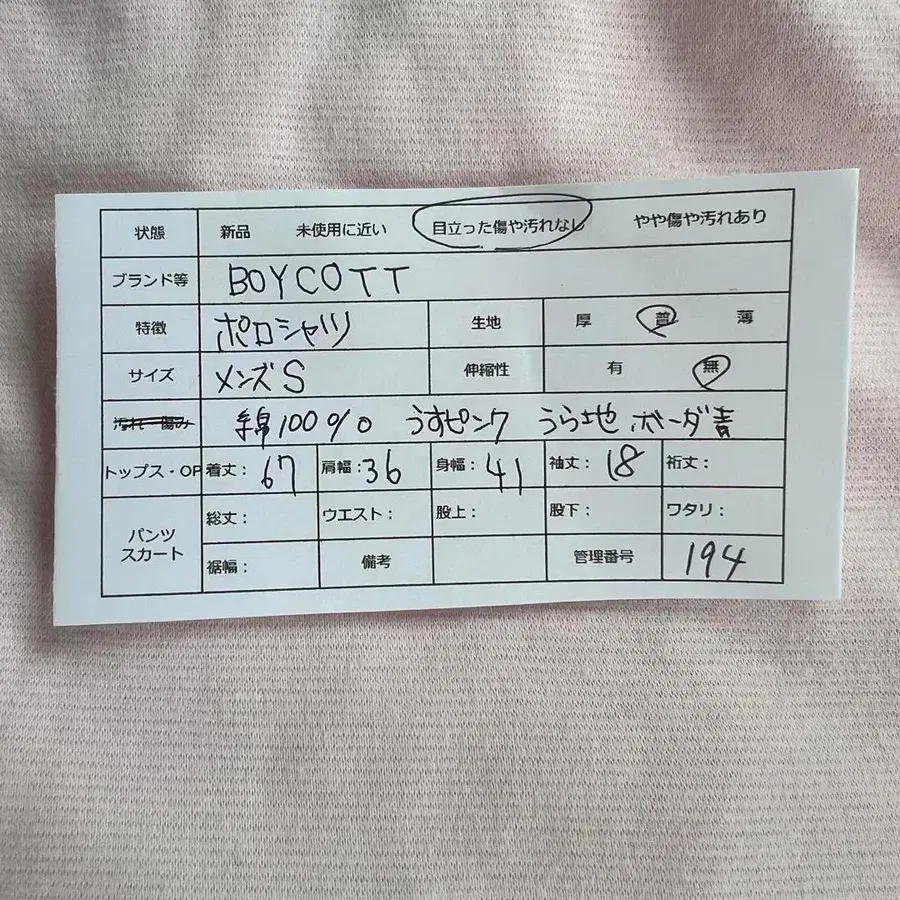 状態 新品 未使用に近い 目立った傷や汚れなし やや傷や汚れあり
ブランド等 BOYCOTT
特徴 ポロシャツ 生地 厚 普 薄
サイズ メンズS 伸縮性 有 無
汚れ・傷み 綿100% うすピンク うら地 ボーダ青
トップス・OP 着丈：67 肩幅：36 身幅：41 袖丈：18 裄丈：
パンツ スカート 総丈： ウエスト： 股上： 股下： ワタリ：
裾幅： 備考 管理番号 194